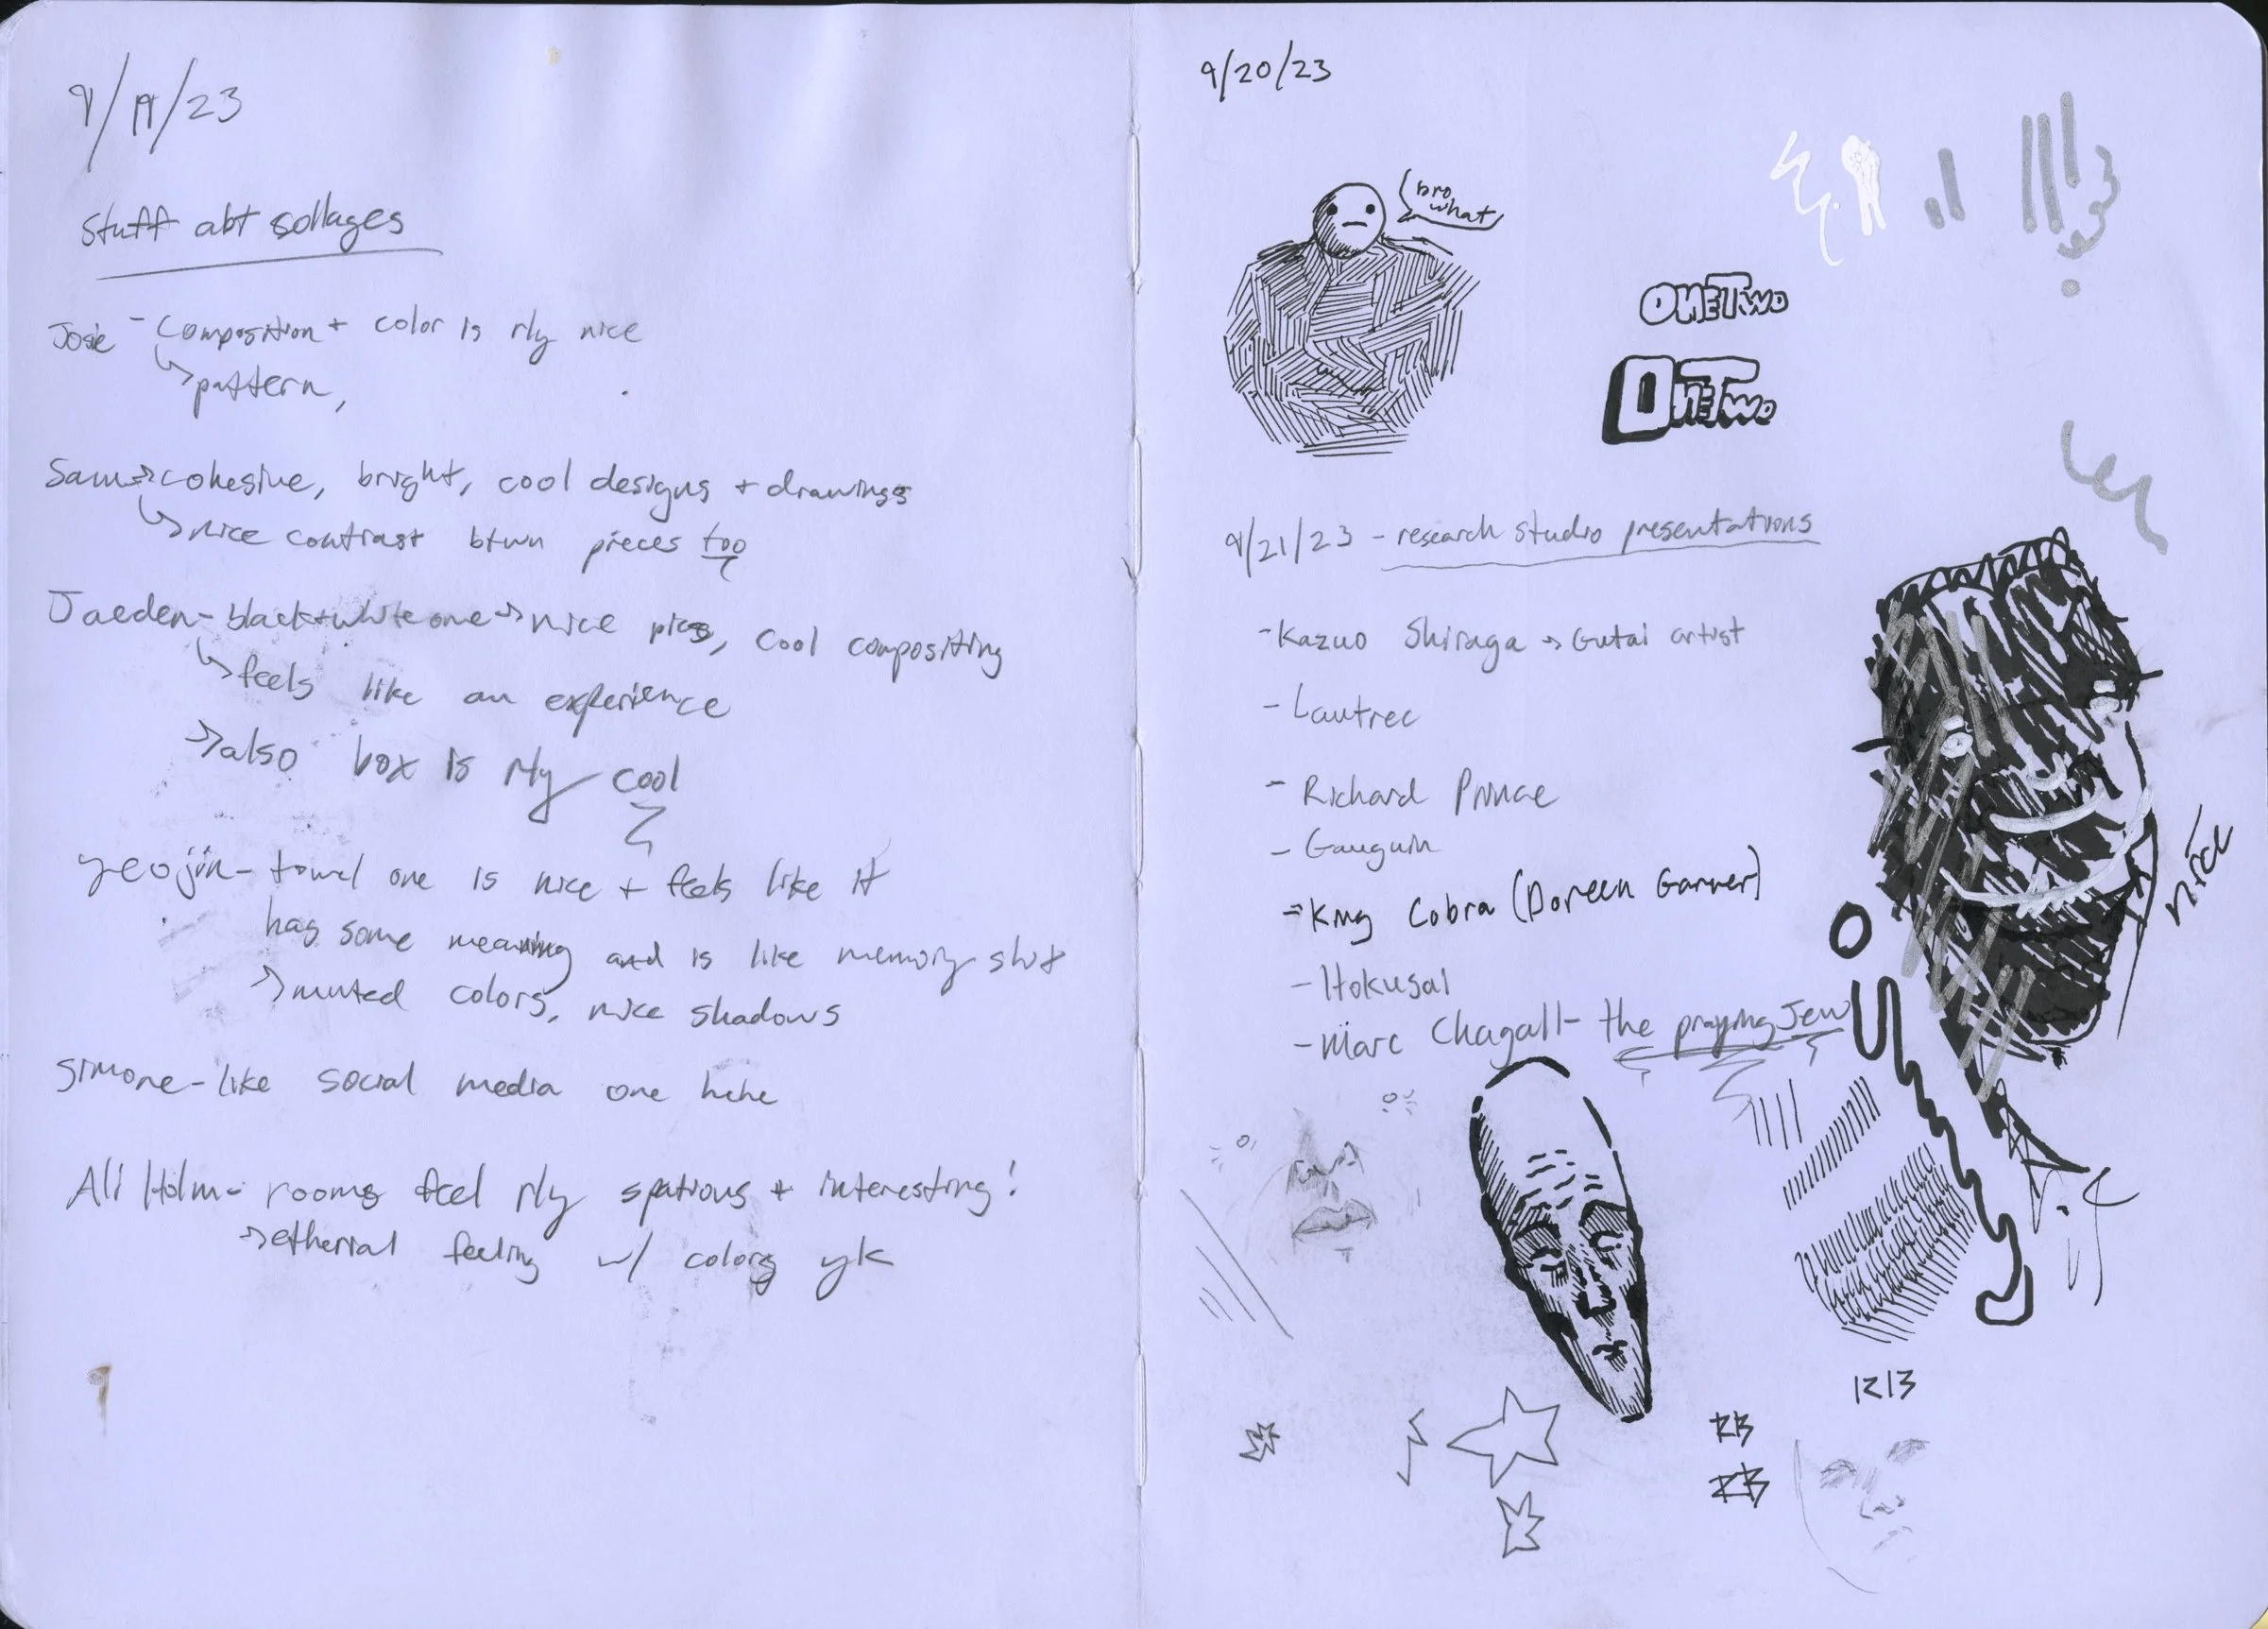 9/19/23
stuff abt sollages
Josie - Composition + color is rly nice
↳ pattern,
Sam → cohesive, bright, cool designs + drawings
↳ nice contrast btwn pieces too
Jaeden - black+white one → nice pics, cool compositing
↳ feels like an experience
→ also box is rly cool
yeojin - towel one is nice + feels like it
has some meaning and is like memory shit
→ muted colors, nice shadows
Simone - like social media one hehe
Ali Holm - rooms feel rly spatious + interesting!
→ etherial feeling w/ colors yk
9/20/23
bro
what
ONETWO
ONETWO
9/21/23 - research studio presentations
- Kazuo Shiraga → Gutai artist
- Lautrec
- Richard Prince
- Gauguin
- King Cobra (Doreen Garner)
- Hokusai
- Marc Chagall - the praying Jew
nice